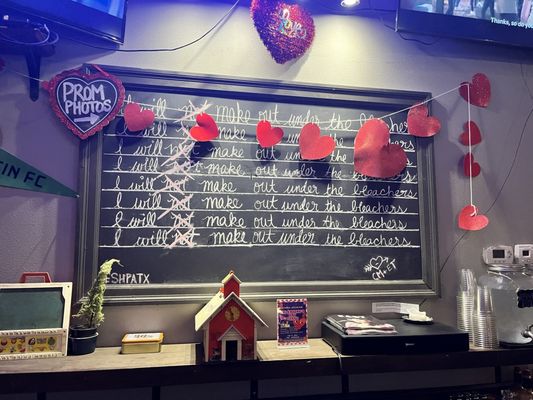 Thanks, so
love
PROM
PHOTOS
TIN FC
I will not make out under the bleachers
I will not make out under the bleachers
I will not make out under the bleachers
I will not make out under the bleachers
I will not make out under the bleachers
I will not make out under the bleachers
I will not make out under the bleachers
I will not make out under the bleachers
#SHPATX
CM + ET